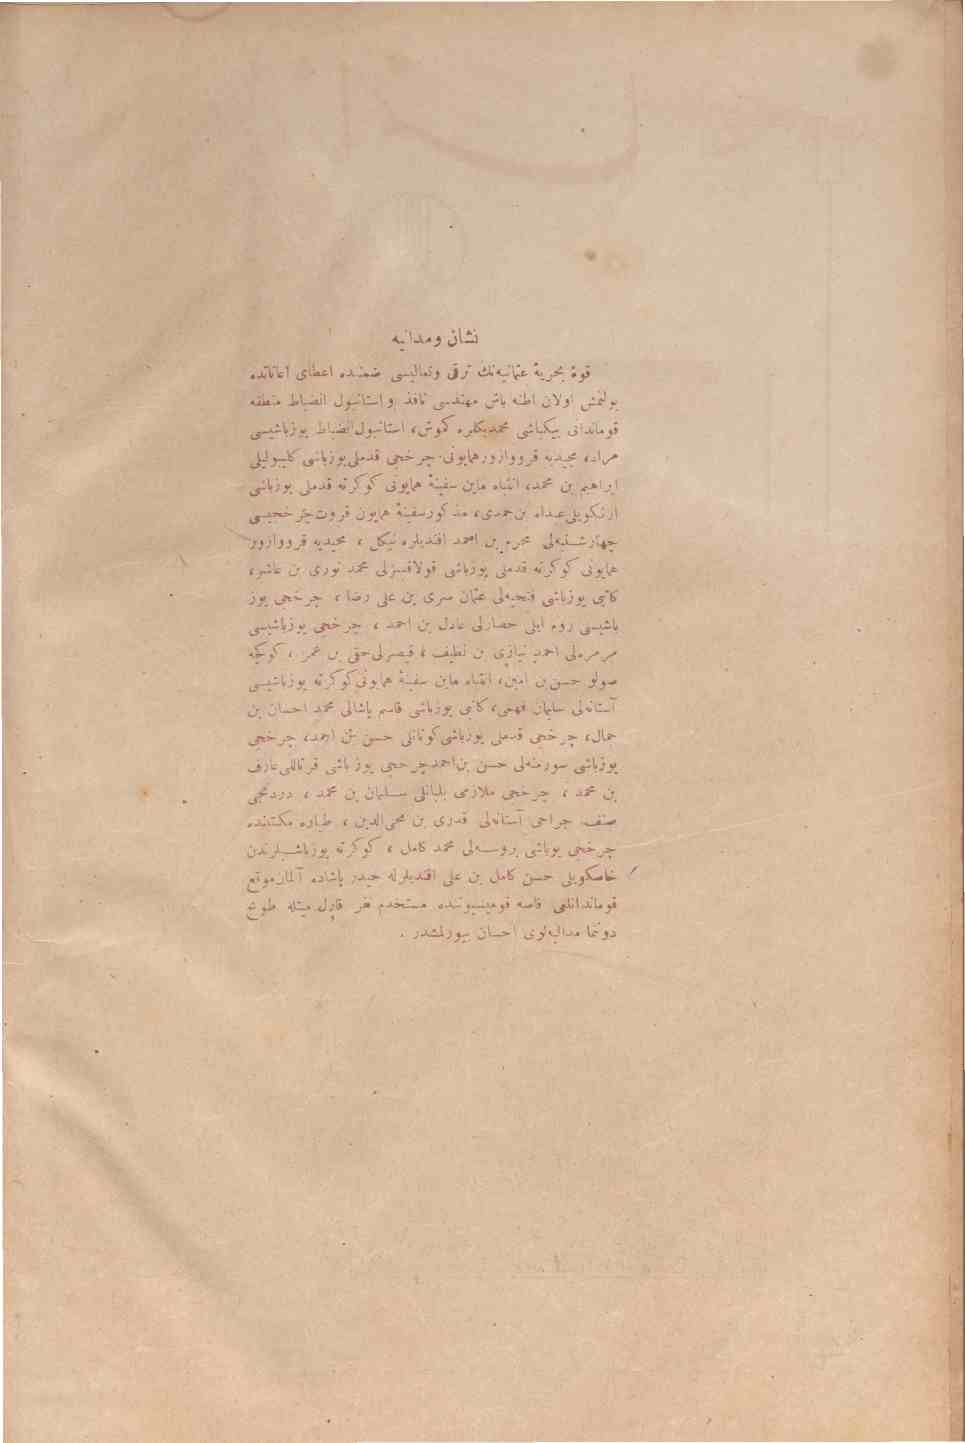 نشان و مدالیه
قوهٔ بحریهٔ عثمانیه‌نك ترقی وتعالیسی ضمننده اعطای اعاناتده
بولنمش اولان اطنه باش مهندسی نافذ و استانبول انضباط منطقه
قوماندانی بیکباشی محمدبکلره کموش، استانبول انضباط یوزباشیسی
مراد، مجیدیه قرووازور همایونی چرخجی قدملی یوزباشی کلیبولیلی
ابراهیم بن محمد، انتباه ماین سفینهٔ همایونی کوکرته قدملی یوزباشی
ارنکویلی عبداﷲ بن حمدی، مذکور سفینهٔ همایون قروت چرخجیسی
چهارشنبه‌لی محرم بن احمد افندیلره نیکل ، مجیدیه قرووازور
همایونی کوکرته قدملی یوزباشی قولاقسزلی محمد نوری بن عاشر،
کاتبی یوزباشی فتحیه‌لی عثمان سری بن علی رضا ، چرخجی یوز
باشیسی روم ایلی حصارلی عادل بن احمد ، چرخجی یوزباشیسی
مرمره‌لی احمد نیازی بن لطیف ، قیصرلی حقی بن عمر ، کوکجه
صولو حسن بن امین، انتباه ماین سفینهٔ همایونی کوکرته یوزباشیسی
آستانه‌لی سلیمان فهمی، کاتبی یوزباشی قاسم پاشالی محمد احسان بن
جمال، چرخجی قدملی یوزباشی حسن بن احمد، چرخجی
یوزباشی سورمنه‌لی حسن بن احمد چرخجی یوزباشی قرتاللی عارف
بن محمد ، چرخجی ملازمی سلیمان بن محمد ، دردنجی
صنف جراحی آستانه‌لی قدری بن محی‌الدین ، طیاره مکتبنده
چرخجی یوباشی بروسه‌لی محمد کامل ، کوکرته یوزباشیلرندن
خاصکویلی حسن کامل بن علی افندیلرله حیدر پاشاده آلمان موقع
قوماندانلغی قاصه قومیسیوننده مستخدم نفر قارل میتله طونج
دوننما مدالیه‌لری احسان بیورلمشدر .